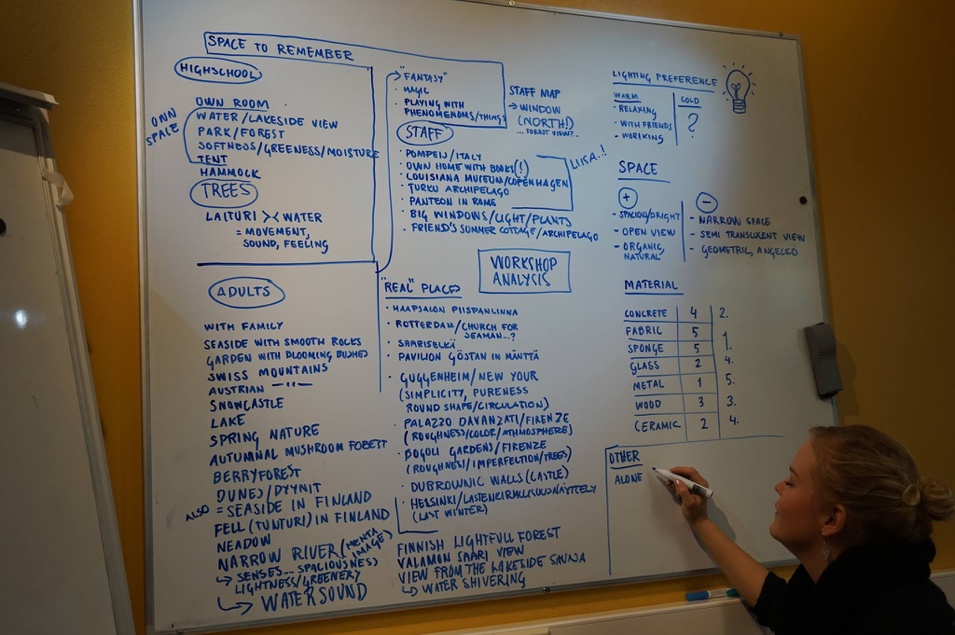 SPACE TO REMEMBER
HIGHSCHOOL
OWN ROOM
WATER/LAKESIDE VIEW
PARK/FOREST
SOFTNESS/GREENESS/MOISTURE
TENT
HAMMOCK
OWN
SPACE
TREES
LAITURI >< WATER
= MOVEMENT,
SOUND, FEELING
ADULTS
WITH FAMILY
SEASIDE WITH SMOOTH ROCKS
GARDEN WITH BLOOMING BUSHES
SWISS MOUNTAINS
AUSTRIAN —"—
SNOWCASTLE
LAKE
SPRING NATURE
AUTUMNAL MUSHROOM FOREST
BERRYFOREST
DUNES/DYYNIT
ALSO = SEASIDE IN FINLAND
FELL (TUNTURI) IN FINLAND
NEADOW
NARROW RIVER (MENTAL
IMAGE)
→ SENSES... SPACIOUSNESS
LIGHTNESS/GREENERY
→ WATERSOUND
"FANTASY"
· MAGIC
· PLAYING WITH
PHENOMENOMS/THINGS
STAFF MAP
→ WINDOW
(NORTH!)
... FOREST VIEW?..
STAFF
· POMPEIJ/ITALY
· OWN HOME WITH BOOKS(!)
· LOUISIANA MUSEUM/COPENHAGEN
· TURKU ARCHIPELAGO
· PANTEON IN ROME
· BIG WINDOWS/LIGHT/PLANTS
· FRIEND'S SUMMER COTTAGE/ARCHIPELAGO
LIIKA..!
WORKSHOP
ANALYSIS
"REAL" PLACES
· HAAPSALON PIISPANLINNA
· ROTTERDAM/CHURCH FOR
SEAMAN...?
· SAARISELKÄ
· PAVILION GÖSTAN IN MÄNTTÄ
· GUGGENHEIM/NEW YOUR
(SIMPLICITY, PURENESS
ROUND SHAPE/CIRCULATION)
· PALAZZO DAVANZATI/FIRENZE
(ROUGHNESS/COLOR/ATHMOSPHERE)
· BOBOLI GARDENS/FIRENZE
(ROUGHNESS/IMPERFECTION/TREES)
· DUBROWNIC WALLS (CASTLE)
· HELSINKI/
(LAST WINTER)
FINNISH LIGHTFULL FOREST
VALAMON SAARI VIEW
VIEW FROM THE LAKESIDE SAUNA
→ WATER SHIVERING
LIGHTING PREFERENCE
WARM
· RELAXING
· WITH FRIENDS
· WORKING
COLD
?
SPACE
+
· SPACIOUS/BRIGHT
· OPEN VIEW
· ORGANIC,
NATURAL
−
- NARROW SPACE
- SEMI TRANSLUCENT VIEW
- GEOMETRIC, ANGELED
MATERIAL
CONCRETE 4 2.
FABRIC 5
SPONGE 5 1.
GLASS 2 4.
METAL 1 5.
WOOD 3 3.
CERAMIC 2 4.
OTHER
ALONE